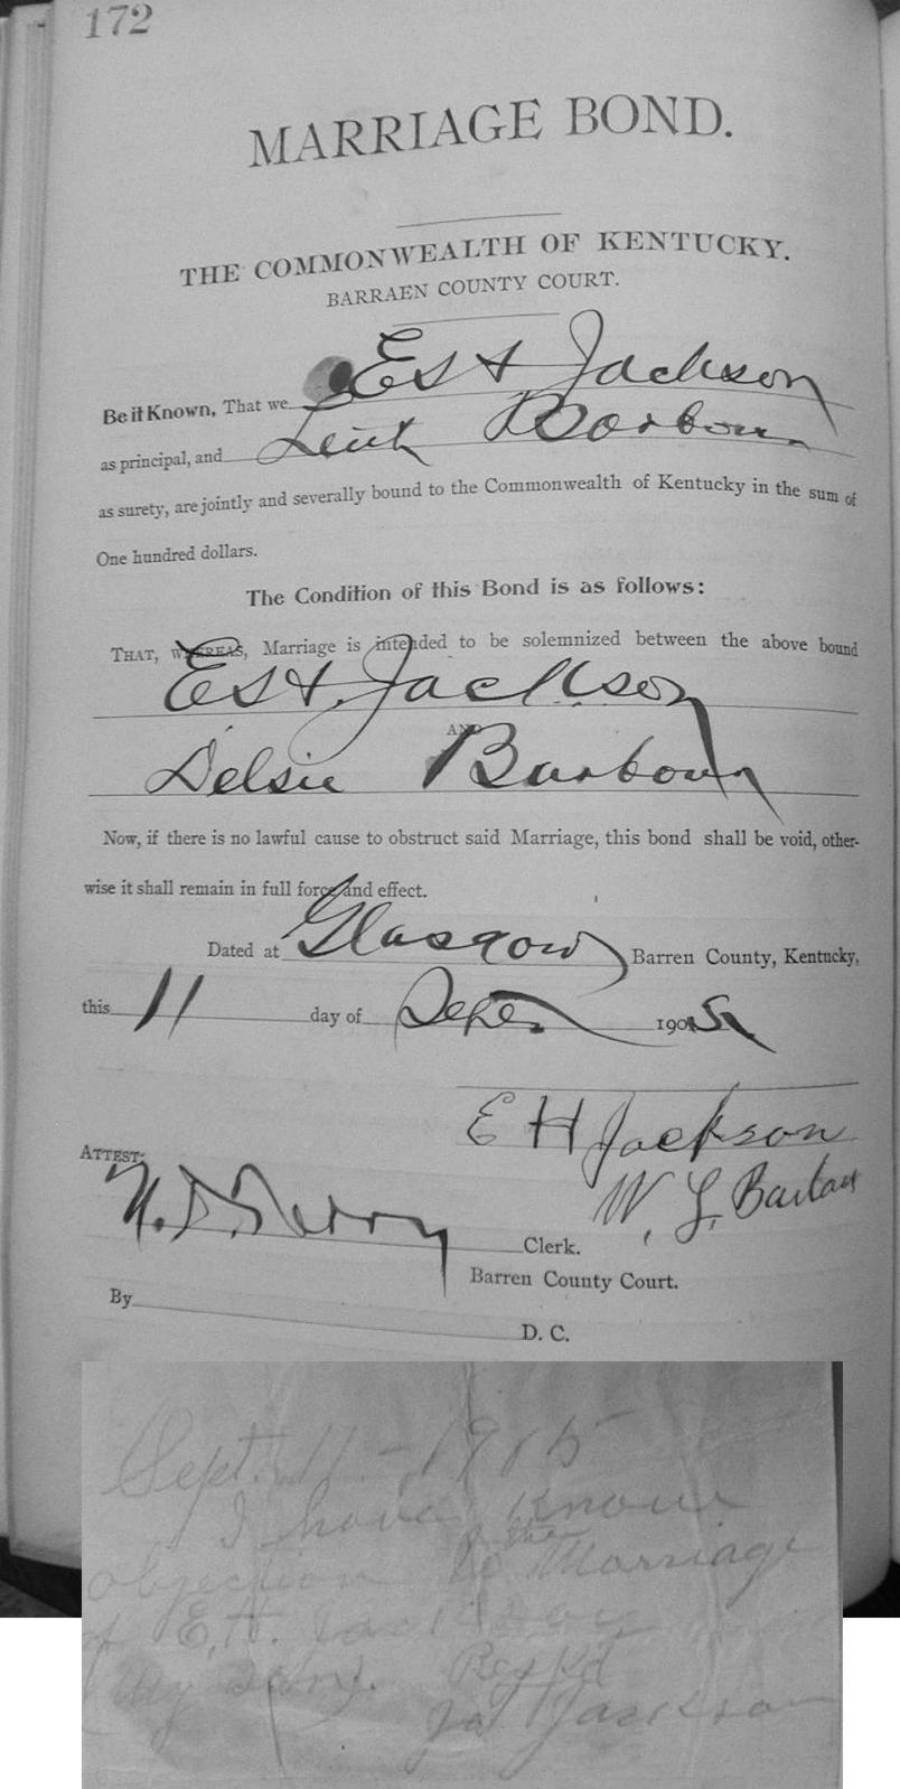 172
MARRIAGE BOND.
THE COMMONWEALTH OF KENTUCKY.
BARRAEN COUNTY COURT.
Be it Known, That we Est Jackson
as principal, and Barbour
as surety, are jointly and severally bound to the Commonwealth of Kentucky in the sum of
One hundred dollars.
The Condition of this Bond is as follows:
THAT, WHEREAS, Marriage is intended to be solemnized between the above bound
Est. Jackson
AND
Delsie Barbour
Now, if there is no lawful cause to obstruct said Marriage, this bond shall be void, other-
wise it shall remain in full force and effect.
Dated at Glasgow Barren County, Kentucky,
this 11 day of 1905
E H Jackson
ATTEST: W. L. Barbour
Clerk.
Barren County Court.
By
D. C.
Sept. 11 - 1905
I have know
objection to the Marriage
of E.H. Jackson
My son. Resptd
Jackson